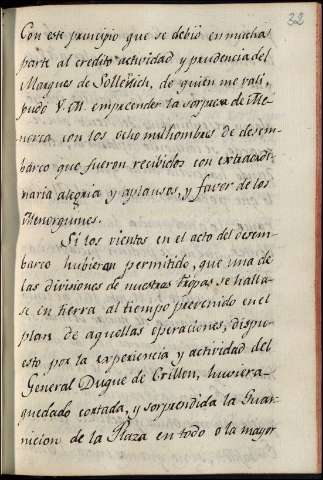 32
Con este principio que se debiò en mucha
parte al credito actividad y prudencia del
Marques de Sollerich, de quien me valí,
pudo V. M. emprender la sorpresa de Me-
norca con los ocho mil hombres de desem-
barco que fueron recibidos con extraordi-
naria alegria y aplausos, y favor de los
Menorquines.
Si los vientos en el acto del desem-
barco hubieran permitido, que una de
las divisiones de nuestras tropas se halla-
se en tierra al tiempo prevenido en el
plan de aquellas operaciones, dispu-
esto por la experiencia y actividad del
General Duque de Crillon, huviera
quedado cortada, y sorprendida la Guar-
nicion de la Plaza en todo o la mayor